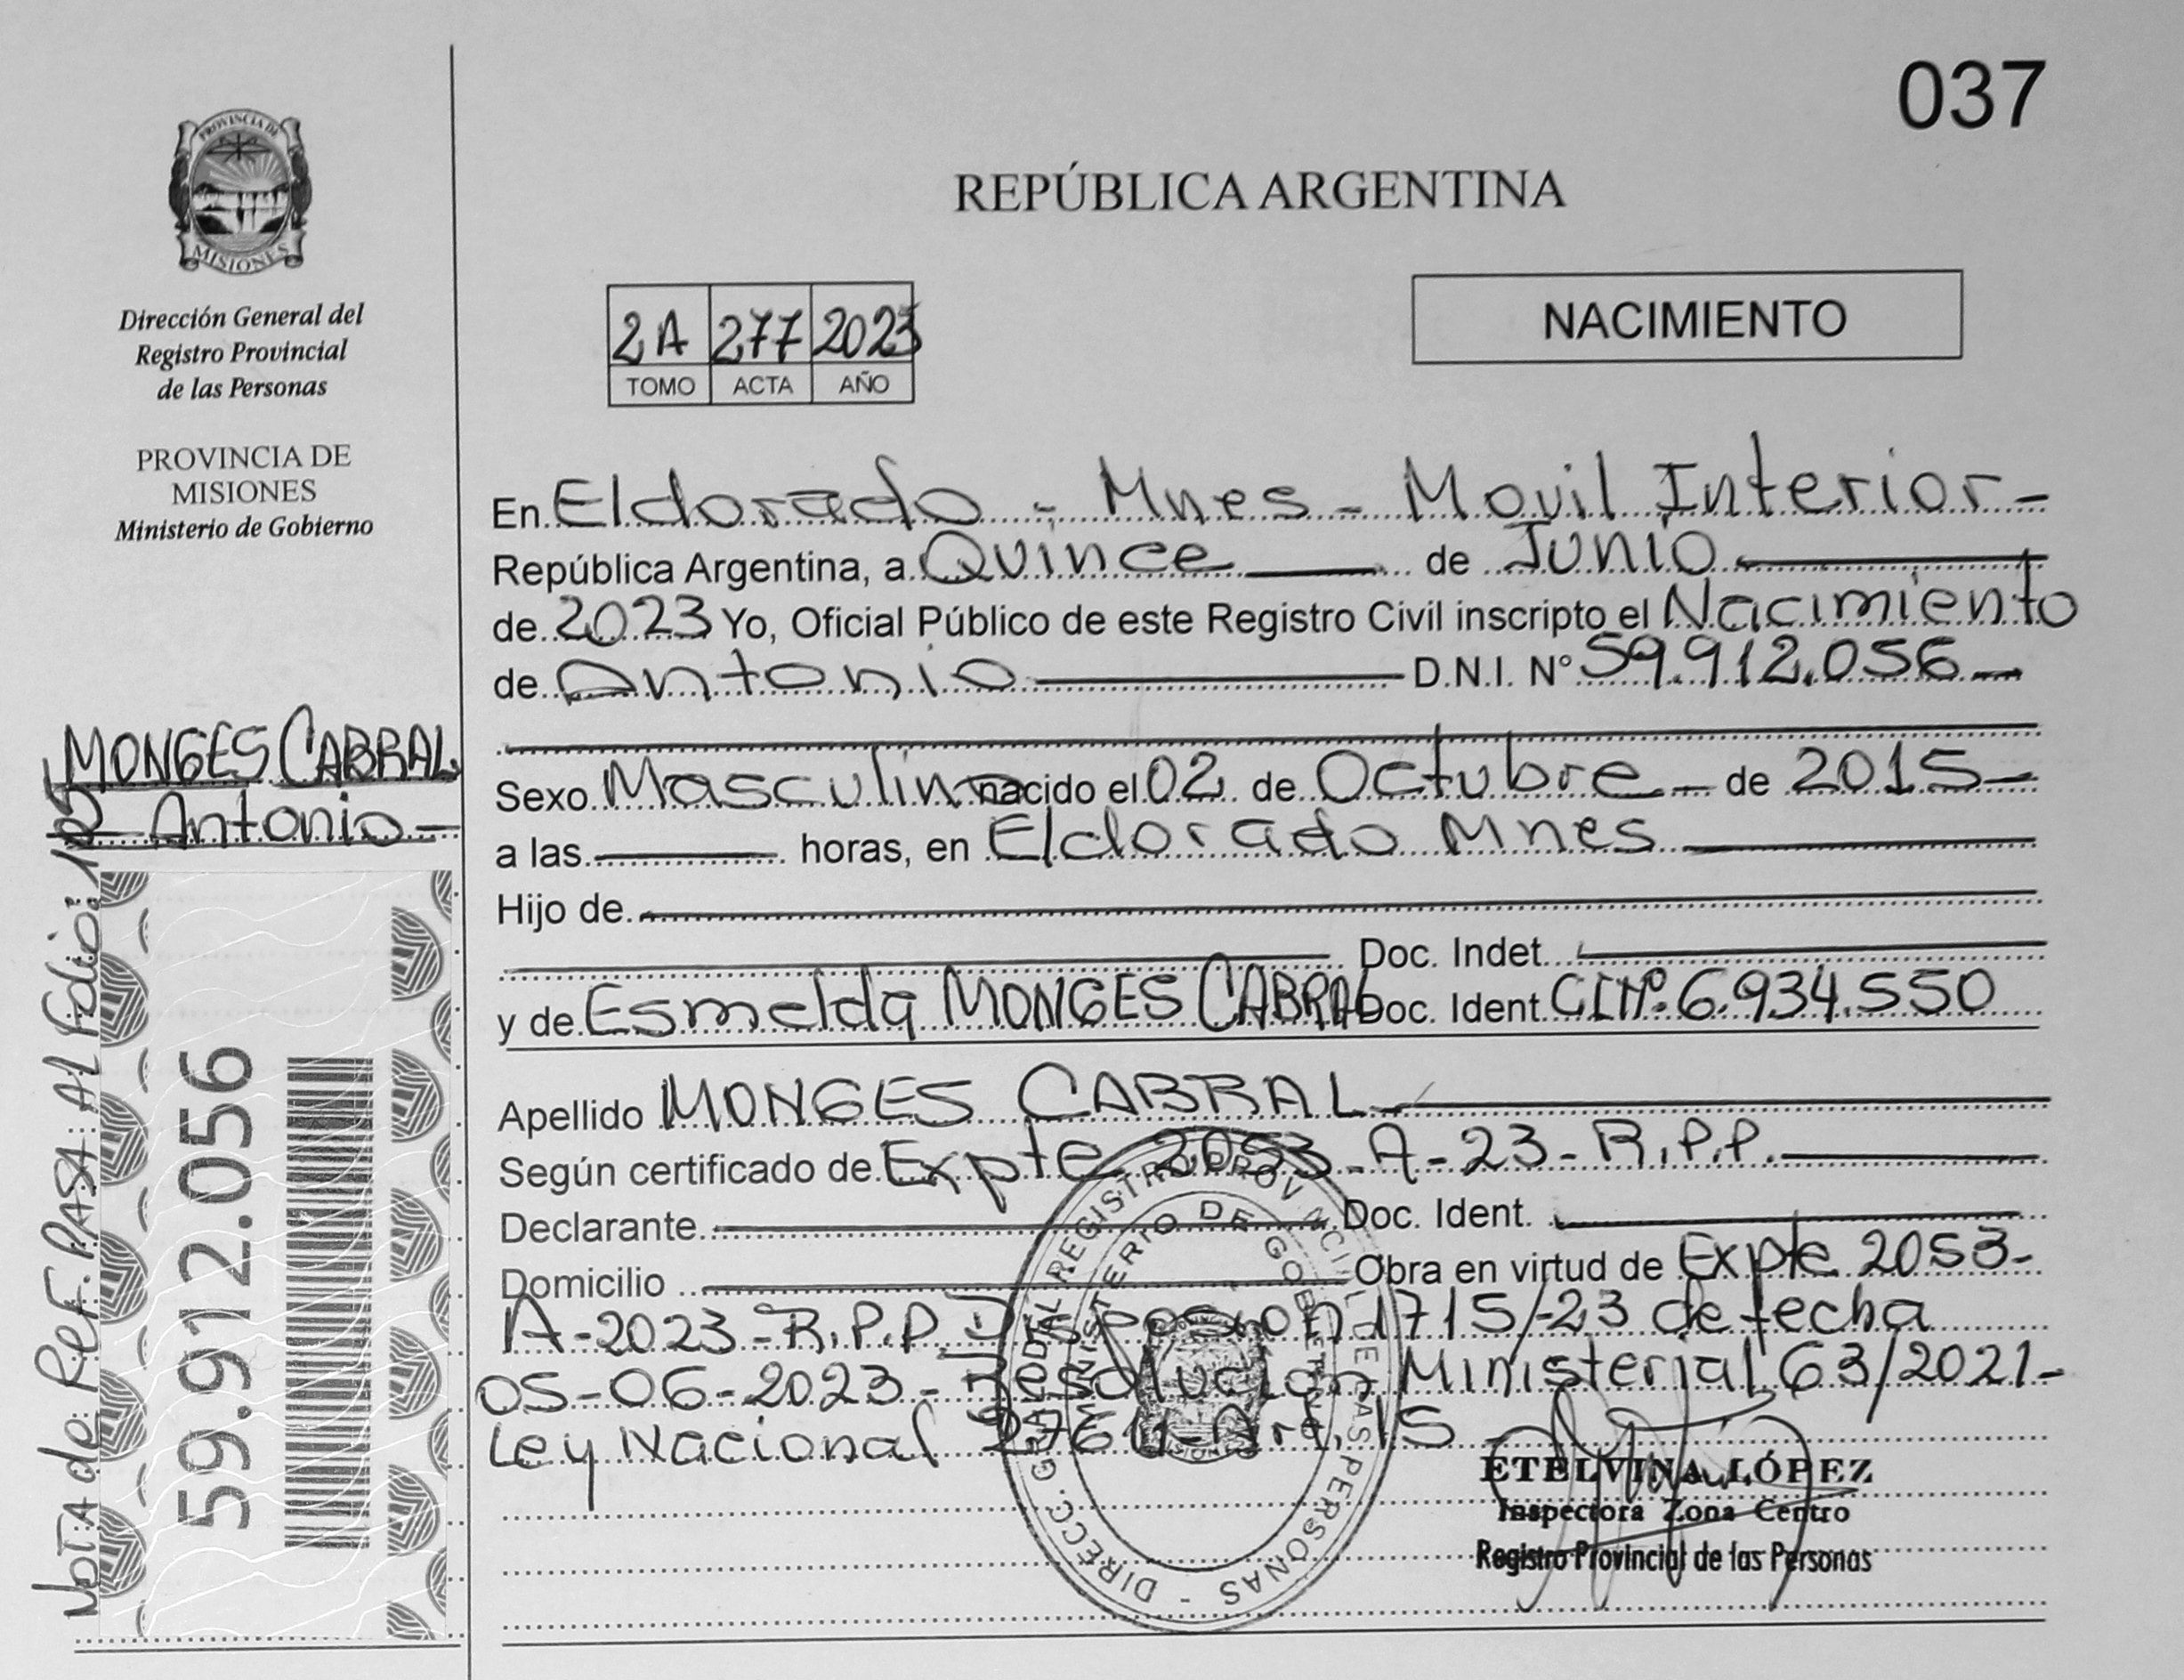 037
PROVINCIA DE
MISIONES
Dirección General del
Registro Provincial
de las Personas
PROVINCIA DE
MISIONES
Ministerio de Gobierno
MONGES CABRAL
Antonio
Nota de Ref. PASA AL Folio: 105
59.912.056
REPÚBLICA ARGENTINA
2A 277 2023
TOMO ACTA AÑO
NACIMIENTO
En Eldorado - Mnes - Movil Interior -
República Argentina, a Quince de Junio
de 2023 Yo, Oficial Público de este Registro Civil inscripto el Nacimiento
de Antonio D.N.I. N° 59.912.056
Sexo Masculino nacido el 02 de Octubre de 2015
a las horas, en Eldorado Mnes
Hijo de
Doc. Indet.
y de Esmelda MONGES CABRAL Doc. Ident. CIN° 6.934.550
Apellido MONGES CABRAL
Según certificado de Expte 2053-A-23-R.P.P.
Declarante Doc. Ident.
Domicilio Obra en virtud de Expte 2053-
A-2023-R.P.P. Disposicion 1715/23 de fecha
05-06-2023- Resolucion Ministerial 63/2021-
Ley Nacional Art. 15
DIRECC. GRAL DEL REGISTRO PROVINCIAL DE LAS PERSONAS -
MINISTERIO DE GOBIERNO
ETELVINA LÓPEZ
Inspectora Zona Centro
Registro Provincial de las Personas